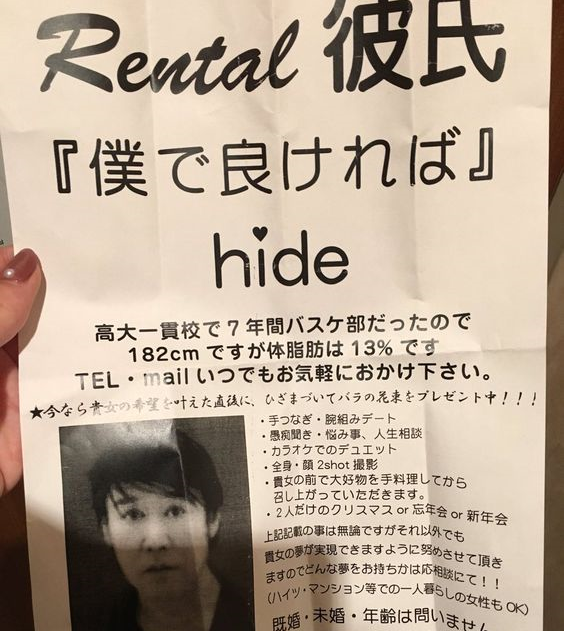 Rental 彼氏
『僕で良ければ』
hide
高大一貫校で7年間バスケ部だったので
182cmですが体脂肪は13%です
TEL・mailいつでもお気軽におかけ下さい。
★今なら貴女の希望を叶えた直後に、ひざまづいてバラの花束をプレゼント中!!!
・手つなぎ・腕組みデート
・愚痴聞き・悩み事、人生相談
・カラオケでのデュエット
・全身・顔2shot撮影
・貴女の前で大好物を手料理してから
召し上がっていただきます。
・2人だけのクリスマスor忘年会or新年会
上記記載の事は無論ですがそれ以外でも
貴女の夢が実現できますように努めさせて頂き
ますのでどんな夢をお持ちかは応相談にて!!
(ハイツ・マンション等での一人暮らしの女性もOK)
既婚・未婚・年齢は問いません